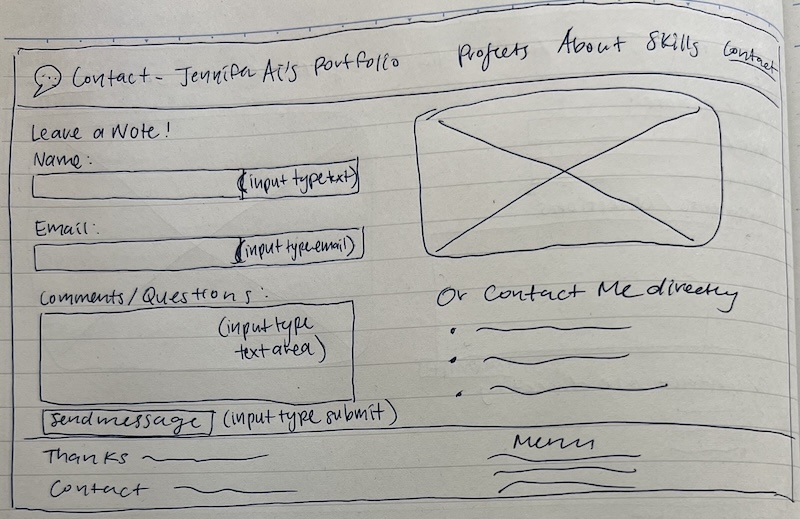 Contact - Jennifa Ai's Portfolio Projects About Skills Contact
Leave a Note!
Name:
(input type txt)
Email:
(input type email)
Comments/Questions:
(input type
text area)
send message (input type submit)
Or Contact Me directly
Thanks
Contact
Menu